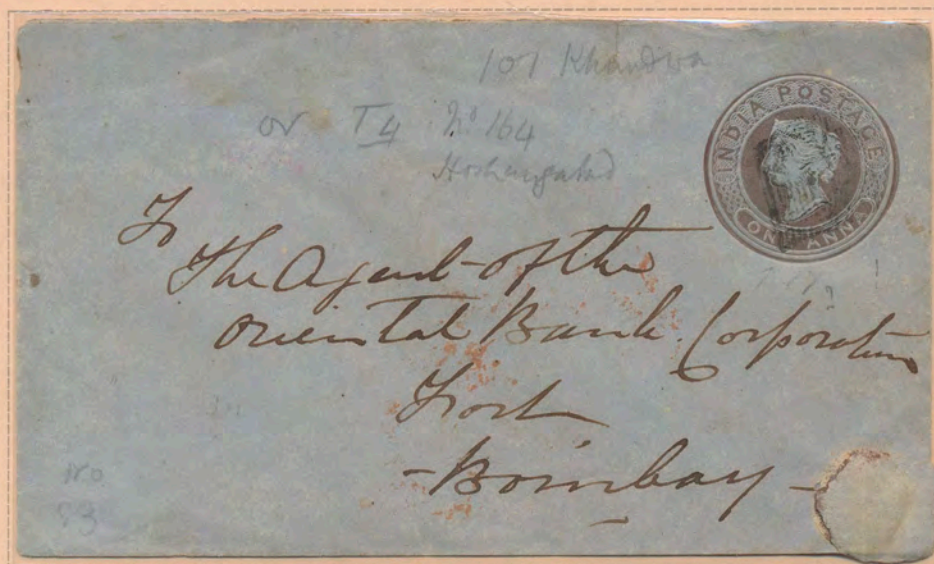 101 Khandwa
or T4 No 164
Hoshangabad
INDIA POSTAGE
ONE ANNA
To
The Agent of the
Oriental Bank Corporation
Fort
- Bombay -
No